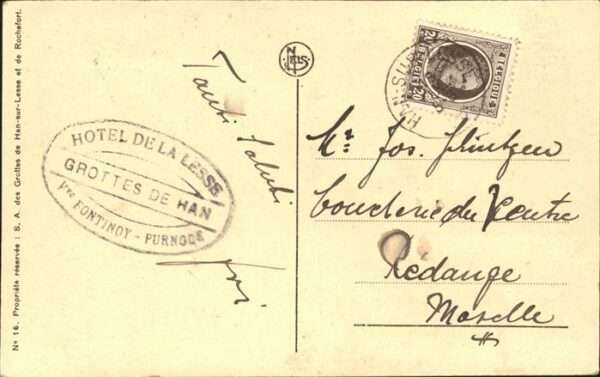 No 16. Propriété réservée : S. A. des Grottes de Han-sur-Lesse et de Rochefort.
HOTEL DE LA LESSE
GROTTES DE HAN
Vve FONTINOY - FURNODE
Tanti saluti
HAN-SU
BELGIË 20
20 BELGIQUE
Mr. Jos. Printgen
Boucherie du Centre
Rédange
Moselle